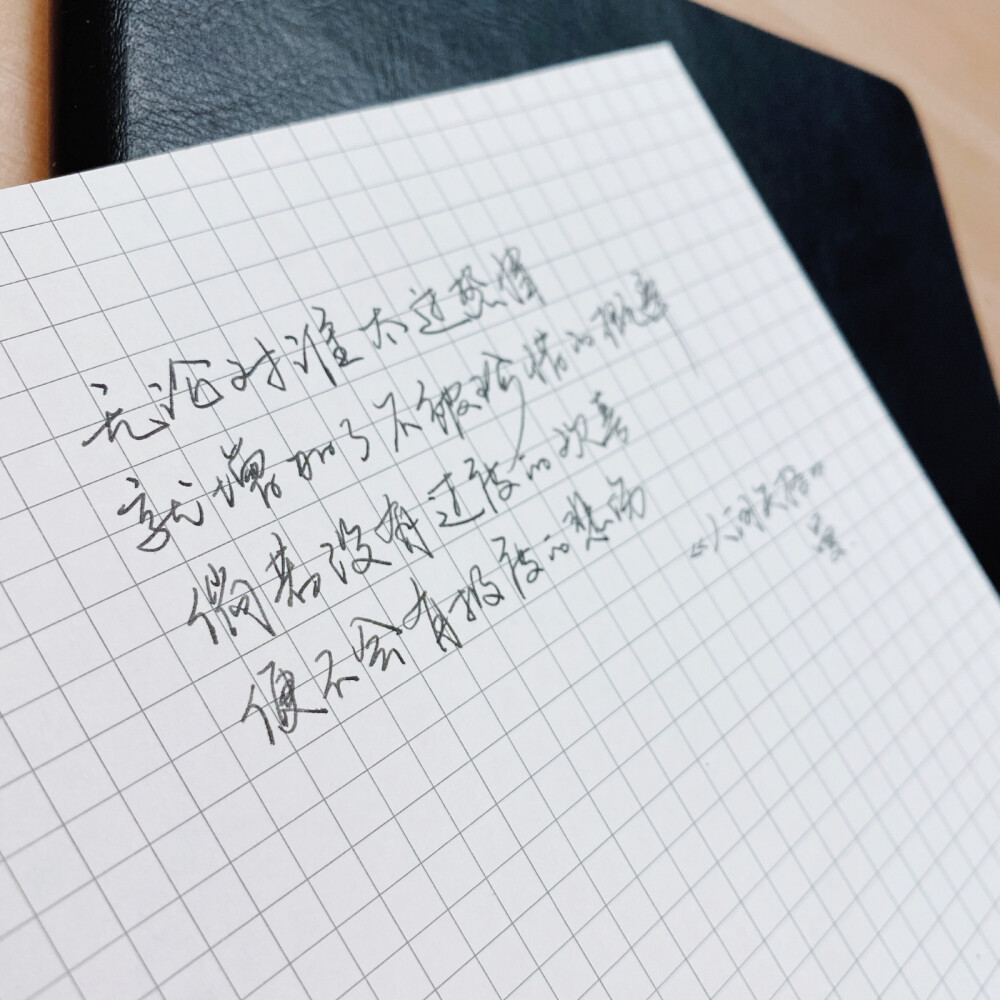 无论对谁太过热情
就增加了不被珍惜的概率
倘若没有过度的欢喜
便不会有极度的悲伤
《人间失格》